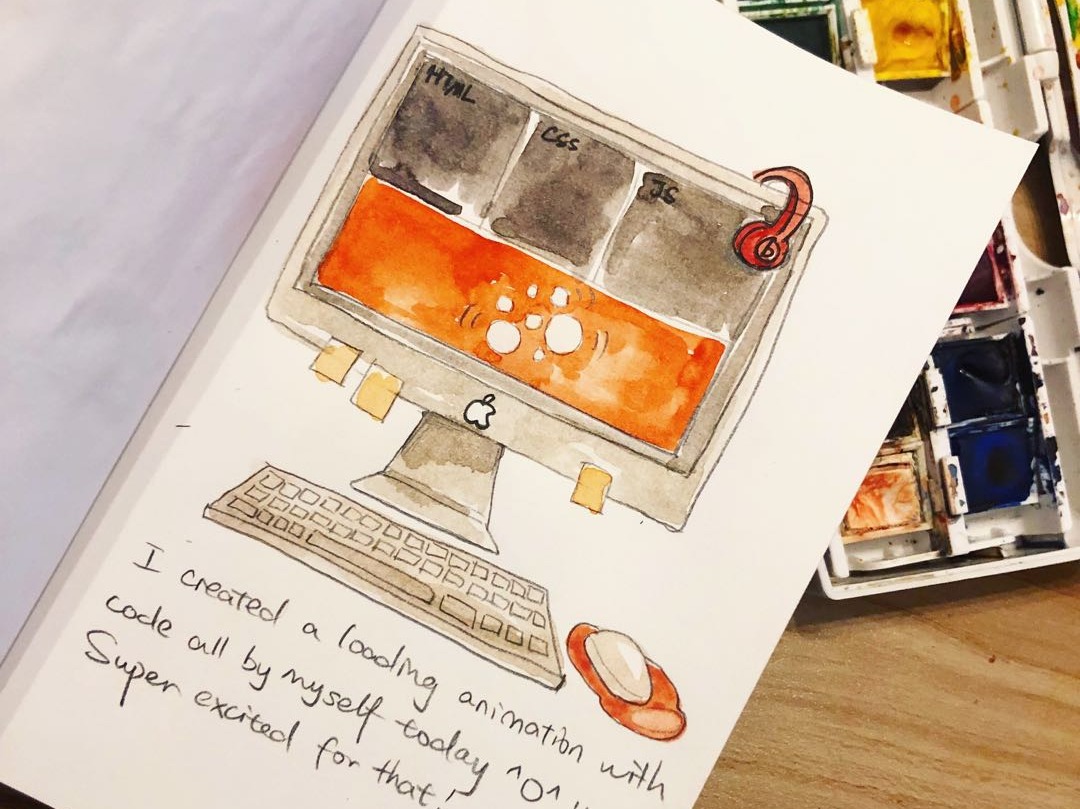 HTML
CSS
JS
b
I created a loading animation with
code all by myself today ^O^
Super excited for that!